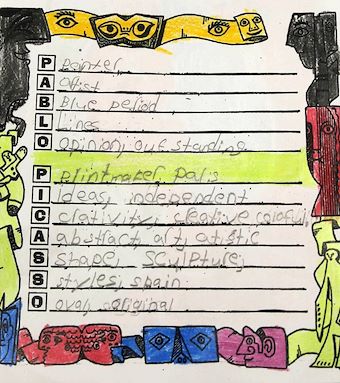 P Painter
A Artist
B Blue period
L Lines
O opinion, out standing
P Printmaker Paris
I Ideas, independent
C creativity, creative colorful,
A abstract, art, artistic
S shape, sculpture,
S styles, spain
O oval, original